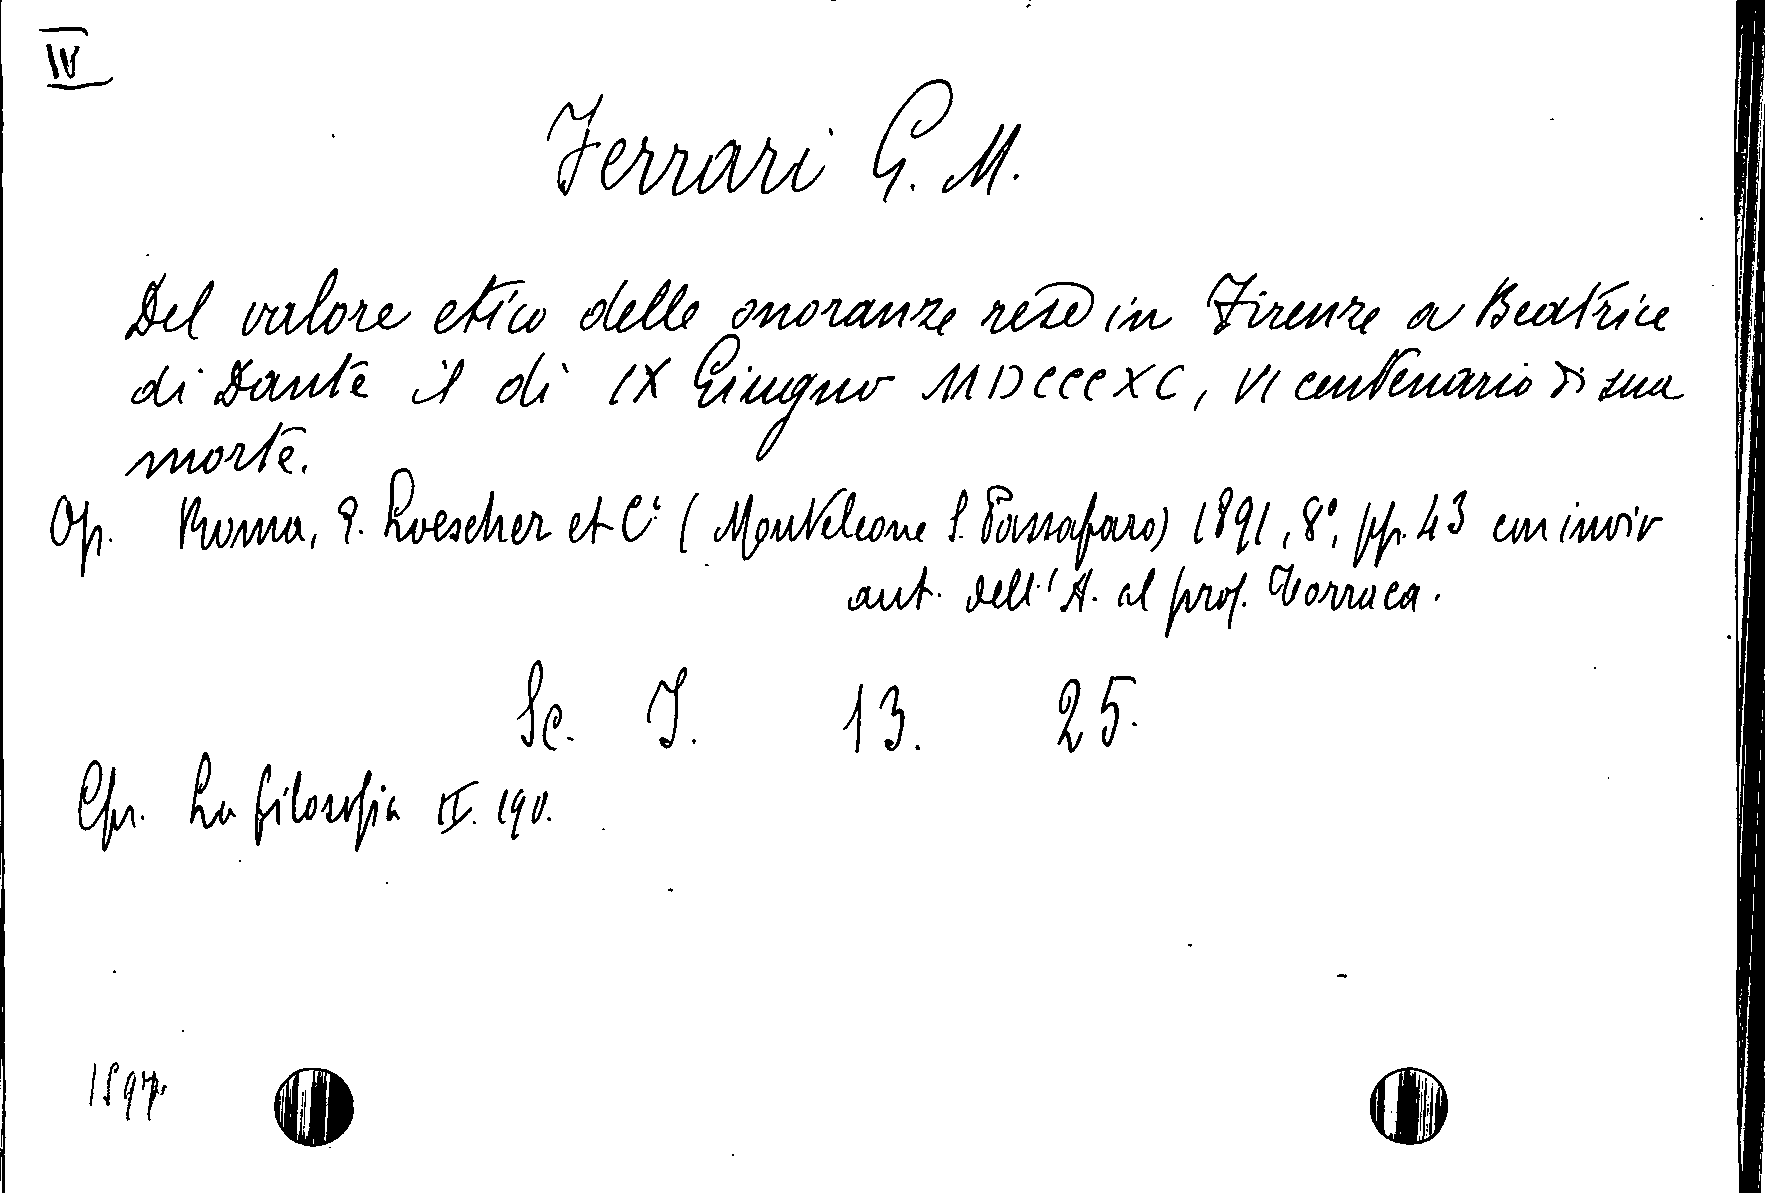 IV
Ferrari G. M.
Del valore etico delle onoranze rese in Firenze a Beatrice
di Dante il dì IX Giugno MDCCCXC, VI centenario di sua
morte.
Op. Roma, E. Loescher et Cⁱ (Monteleone S. Passafaro) 1891, 8°, pp. 43 con invio
aut. dell'A. al prof. Torraca.
Sc. I. 13. 25.
Cfr. La filosofia II. 190.
1897.